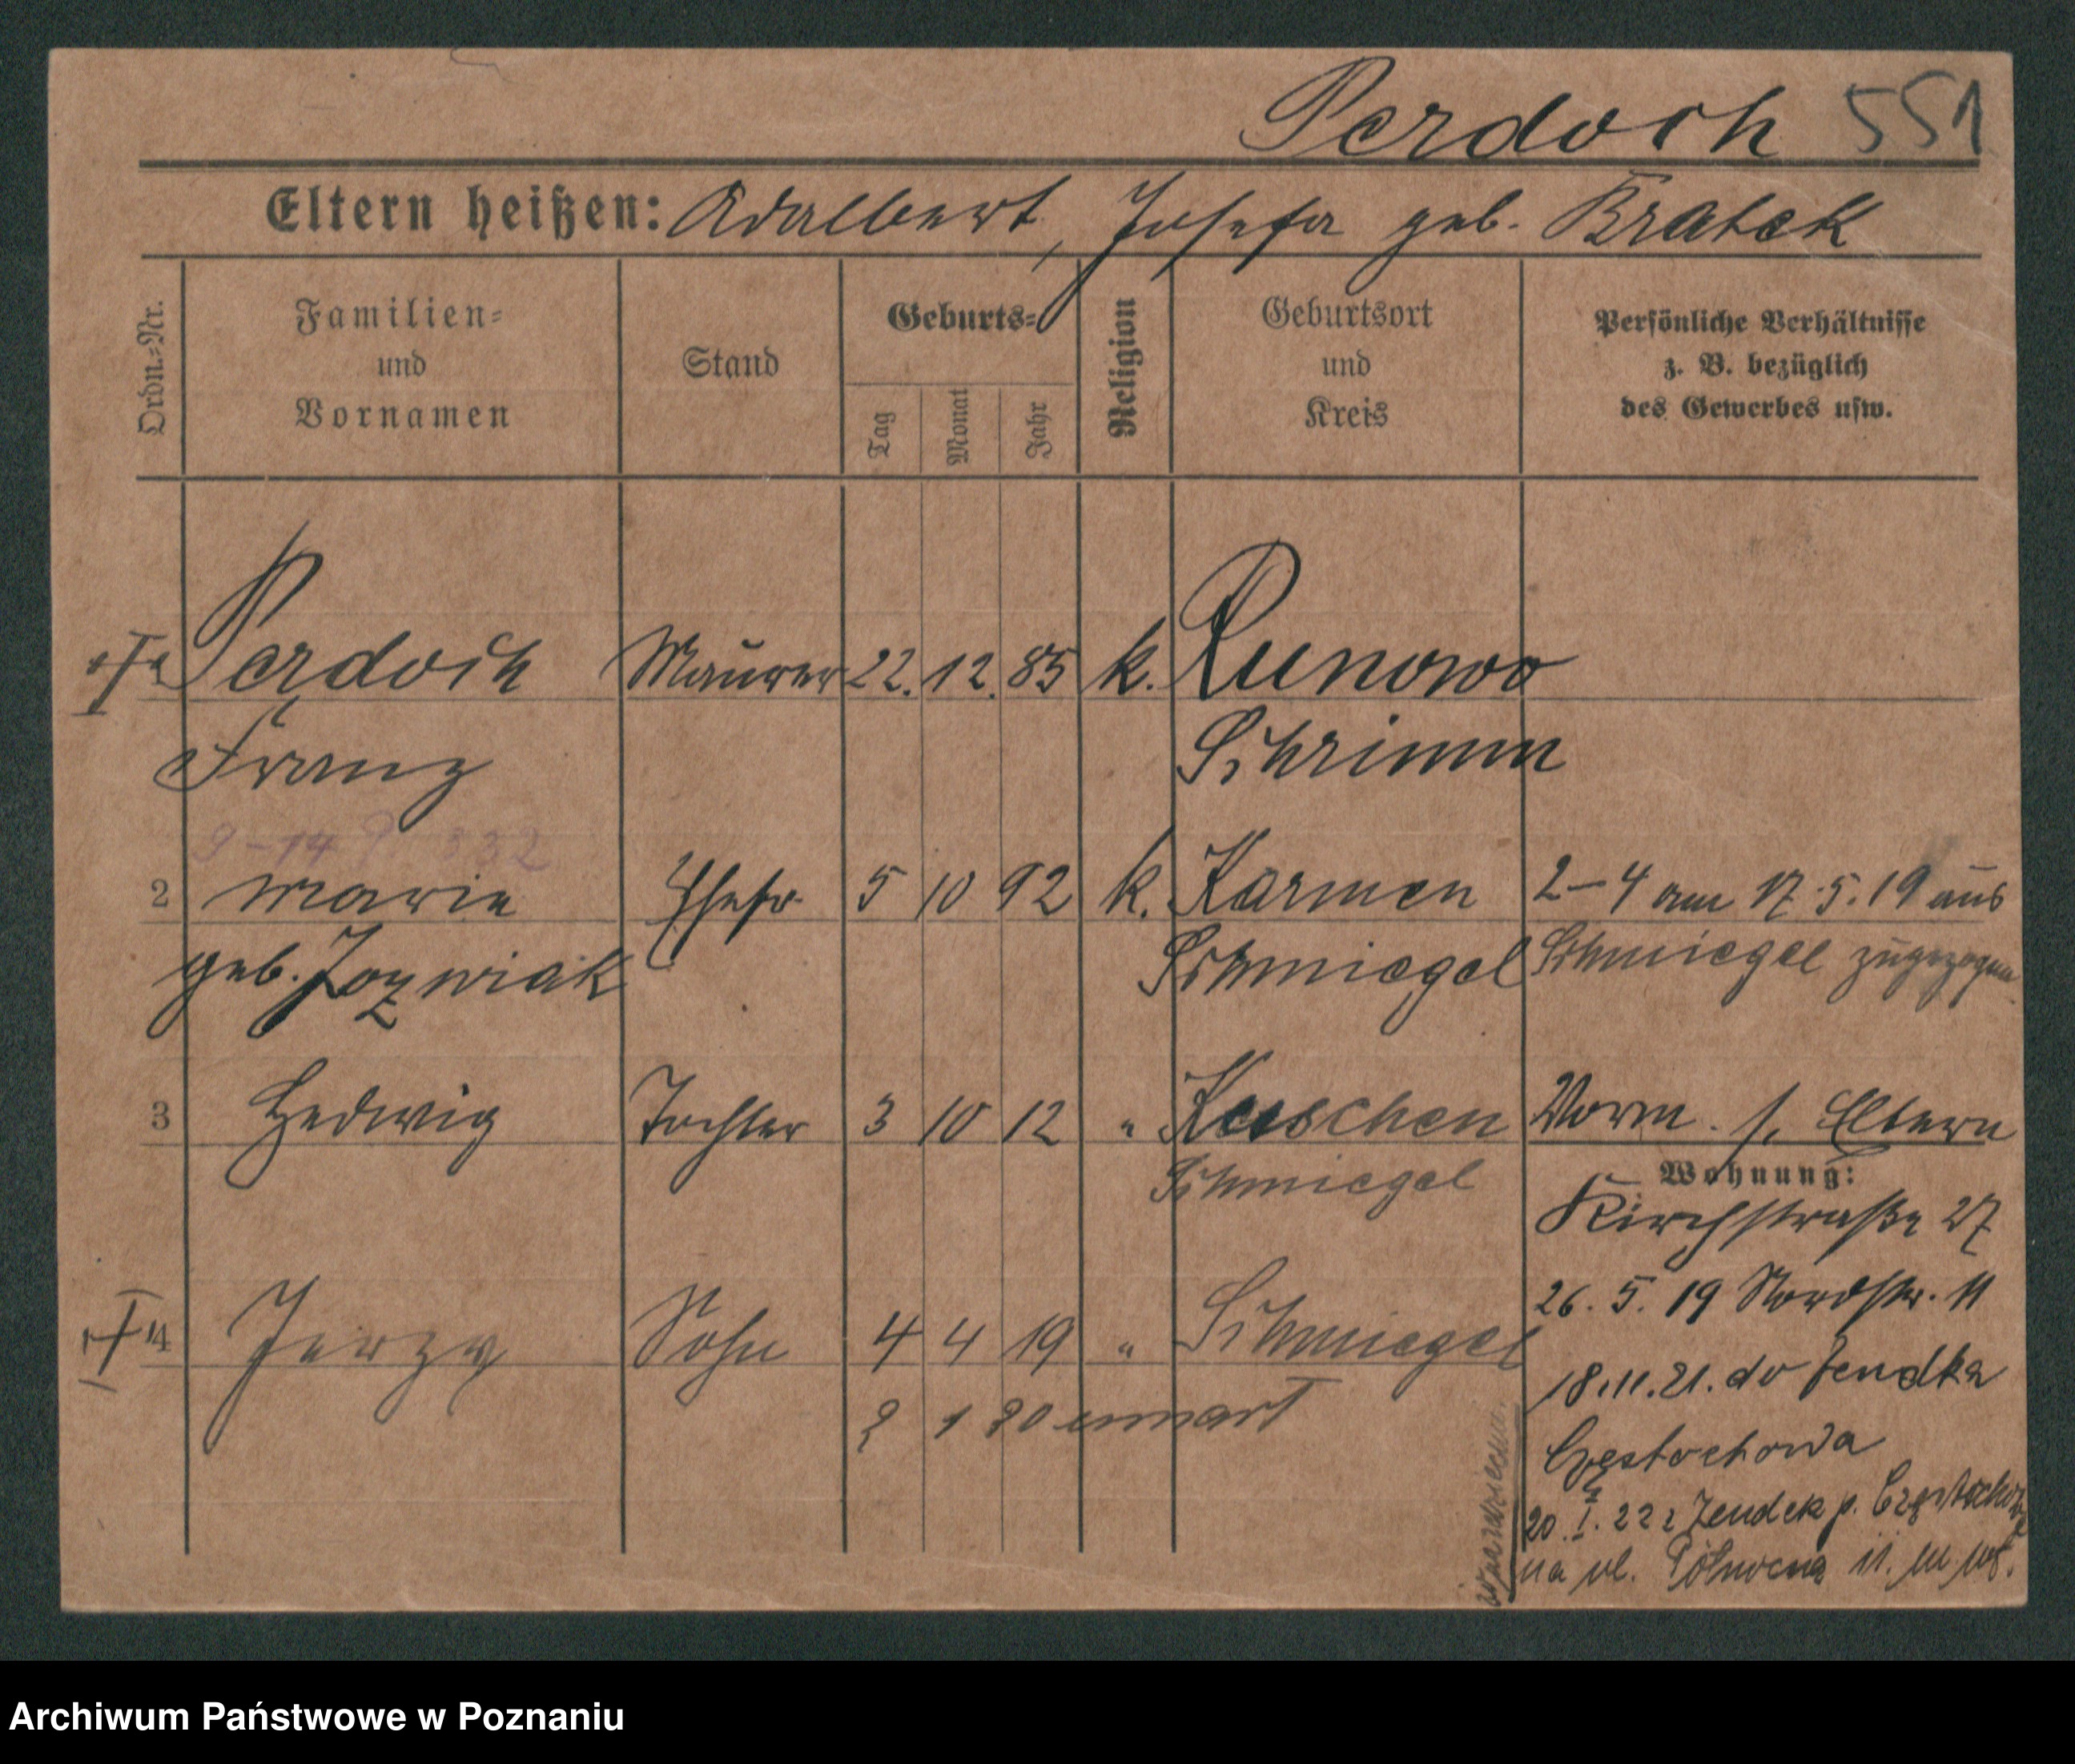 Perdoch 551
Eltern heißen: Adalbert, Josefa geb. Bratek
Ordn.=Nr.
Familien=
und
Vornamen
Stand
Geburts=
Tag
Monat
Jahr
Religion
Geburtsort
und
Kreis
Persönliche Verhältnisse
z. B. bezüglich
des Gewerbes usw.
Perdoch Maurer 22. 12. 85 k. Runowo
Franz Schrimm
9-14 332
2 Marie Ehefr. 5 10 92 k. Karmen 2-4 am 17.5.19 aus
geb. Jozwiak Schmiegel Schmiegel zugezogen
3 Hedwig Tochter 3 10 12 " Kuschen Worm. s. Eltern
Schmiegel
Wohnung:
Kirchstraße 27
4 Jerzy Sohn 4 4 19 " Schmiegel
26. 5. 19 Nordstr. 11
2 1 20 umart
18.11.21. do Zendka
Częstochowa
20. I. 22 z Zendek p. Częstochowa
na ul. Północna 11.
Archiwum Państwowe w Poznaniu